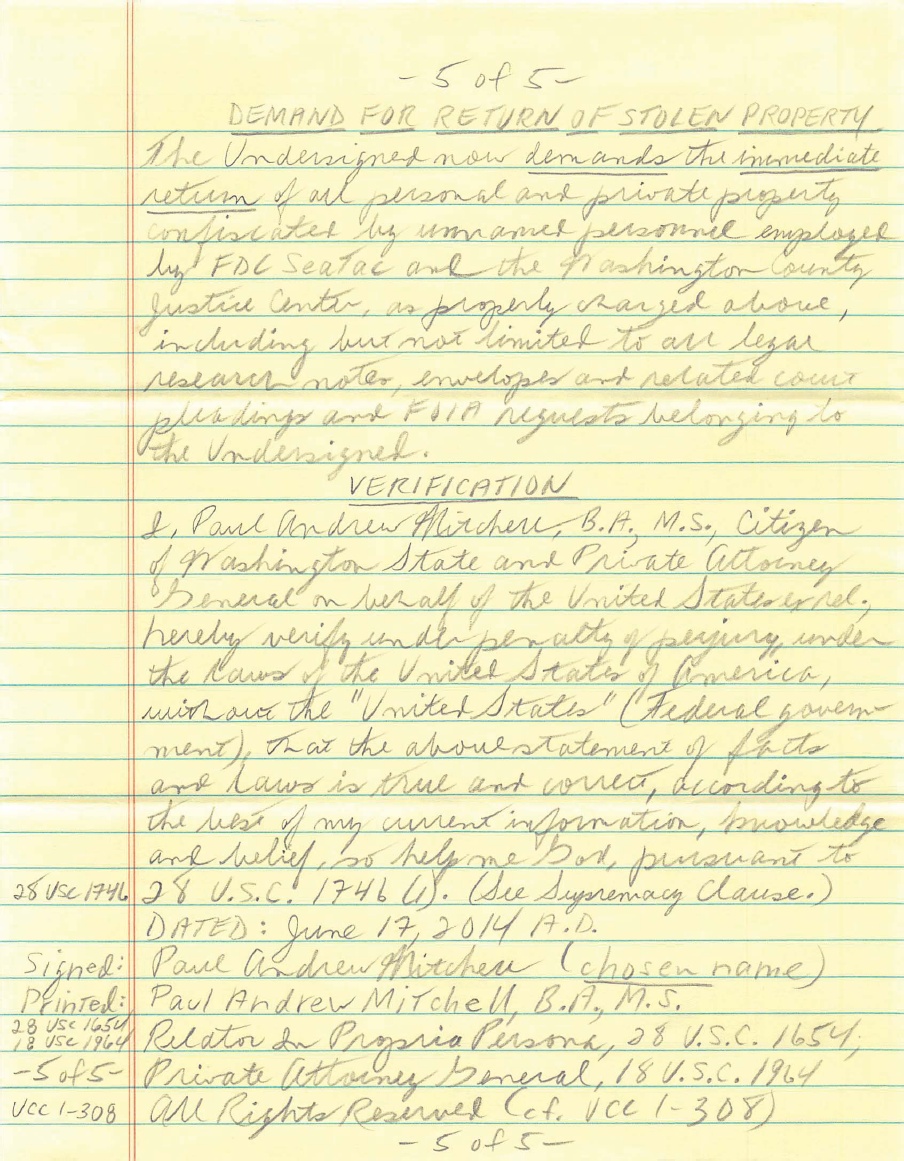 - 5 of 5 -
DEMAND FOR RETURN OF STOLEN PROPERTY
The Undersigned now demands the immediate
return of all personal and private property
confiscated by unnamed personnel employed
by FDC SeaTac and the Washington County
Justice Center, as properly charged above,
including but not limited to all legal
research notes, envelopes and related court
pleadings and FOIA requests belonging to
the Undersigned.
VERIFICATION
I, Paul Andrew Mitchell, B.A., M.S., Citizen
of Washington State and Private Attorney
General on behalf of the United States ex rel.,
hereby verify under penalty of perjury, under
the Laws of the United States of America,
without the "United States" (Federal govern-
ment), that the above statement of facts
and Laws is true and correct, according to
the best of my current information, knowledge
and belief, so help me God, pursuant to
28 USC 1746 28 U.S.C. 1746 (1). (See Supremacy Clause.)
DATED: June 17, 2014 A.D.
Signed: Paul Andrew Mitchell (chosen name)
Printed: Paul Andrew Mitchell, B.A., M.S.
28 USC 1654,
18 USC 1964 Relator In Propria Persona, 28 U.S.C. 1654;
- 5 of 5 - Private Attorney General, 18 U.S.C. 1964
UCC 1-308 All Rights Reserved (cf. UCC 1-308)
- 5 of 5 -